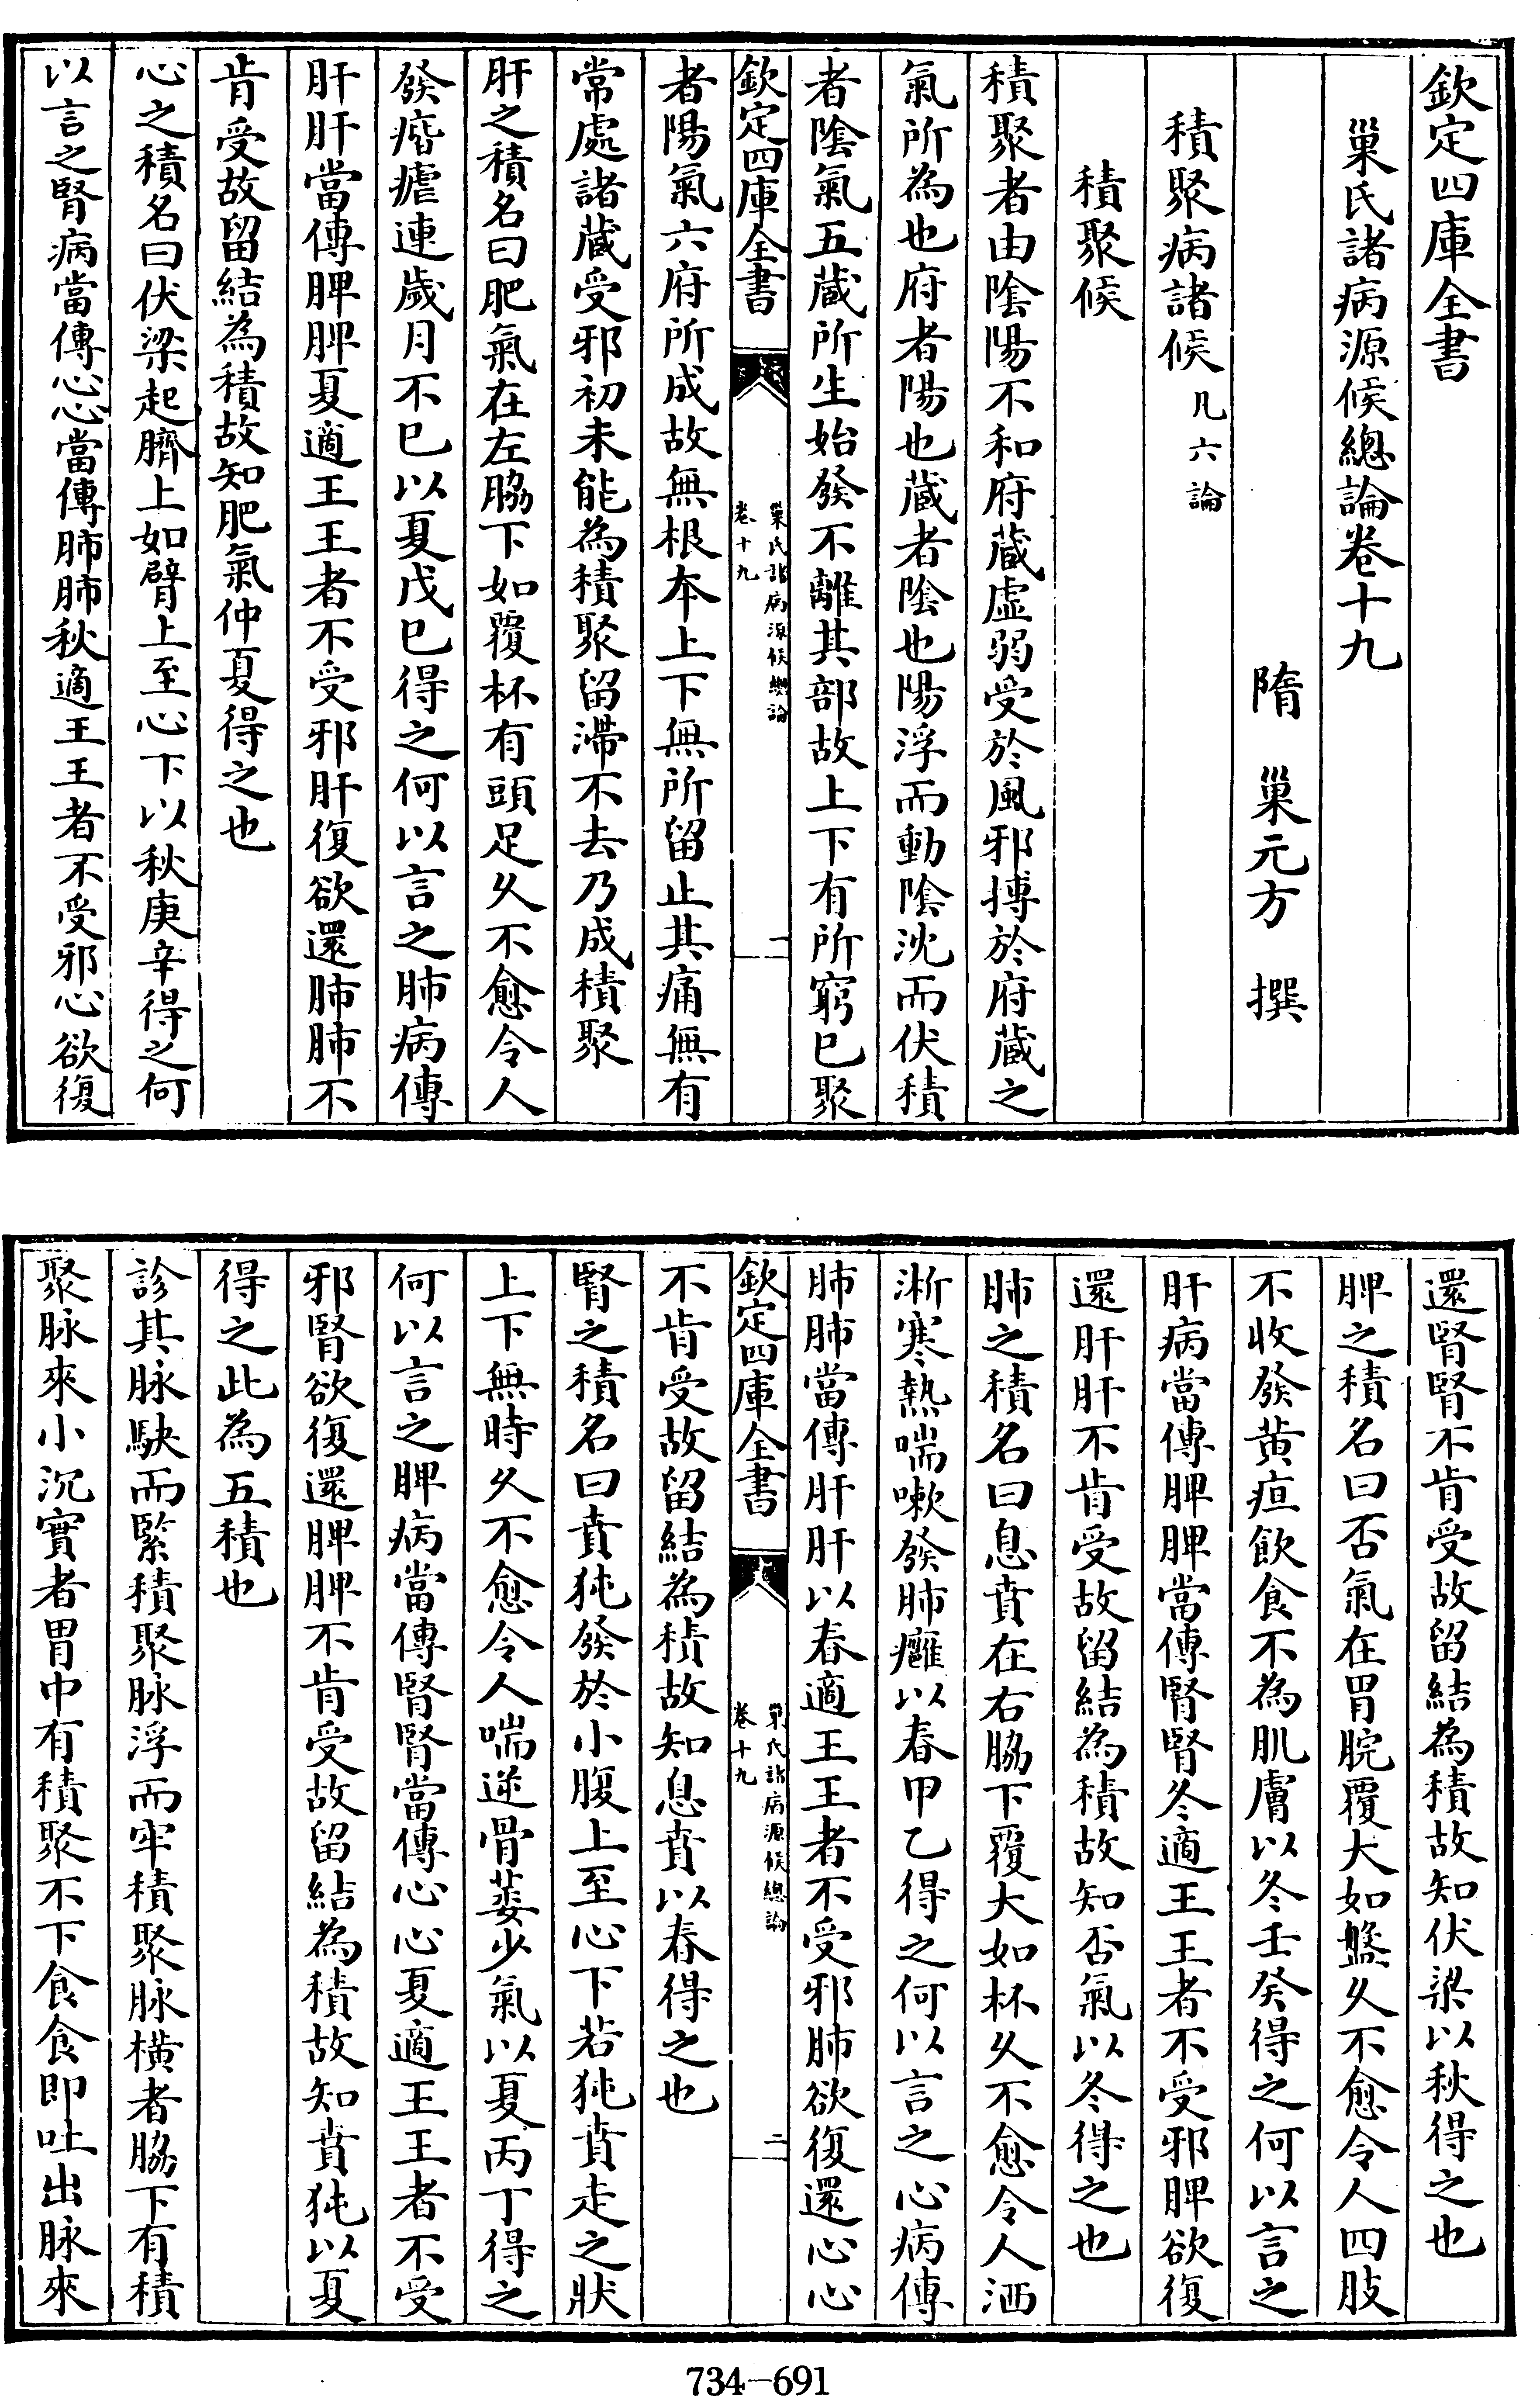 欽定四庫全書
巢氏諸病源候總論卷十九
隋 巢元方 撰
積聚病諸候 凡六論
積聚候
積聚者由陰陽不和府藏虛弱受於風邪搏於府藏之
氣所為也府者陽也藏者陰也陽浮而動陰沈而伏積
者陰氣五藏所生始發不離其部故上下有所窮已聚
欽定四庫全書
巢氏諸病源候總論
卷十九
一
者陽氣六府所成故無根本上下無所留止其痛無有
常處諸藏受邪初未能為積聚留滯不去乃成積聚
肝之積名曰肥氣在左脇下如覆杯有頭足久不愈令人
發㾬瘧連歲月不已以夏戊已得之何以言之肺病傳
肝肝當傳脾脾夏適王王者不受邪肝復欲還肺肺不
肯受故留結為積故知肥氣仲夏得之也
心之積名曰伏梁起臍上如臂上至心下以秋庚辛得之何
以言之腎病當傳心心當傳肺肺秋適王王者不受邪心欲復
還腎腎不肯受故留結為積故知伏梁以秋得之也
脾之積名曰否氣在胃脘覆大如盤久不愈令人四肢
不收發黃疸飲食不為肌膚以冬壬癸得之何以言之
肝病當傳脾脾當傳腎腎冬適王王者不受邪脾欲復
還肝肝不肯受故留結為積故知否氣以冬得之也
肺之積名曰息賁在右脇下覆大如杯久不愈令人洒
淅寒熱喘嗽發肺癰以春甲乙得之何以言之心病傳
肺肺當傳肝肝以春適王王者不受邪肺欲復還心心
欽定四庫全書
巢氏諸病源候總論
卷十九
二
不肯受故留結為積故知息賁以春得之也
腎之積名曰賁㹠發於小腹上至心下若㹠賁走之狀
上下無時久不愈令人喘逆骨萎少氣以夏丙丁得之
何以言之脾病當傳腎腎當傳心心夏適王王者不受
邪腎欲復還脾脾不肯受故留結為積故知賁㹠以夏
得之此為五積也
診其脉駃而緊積聚脉浮而牢積聚脉橫者脇下有積
聚脉來小沉實者胃中有積聚不下食食即吐出脉來
734-691